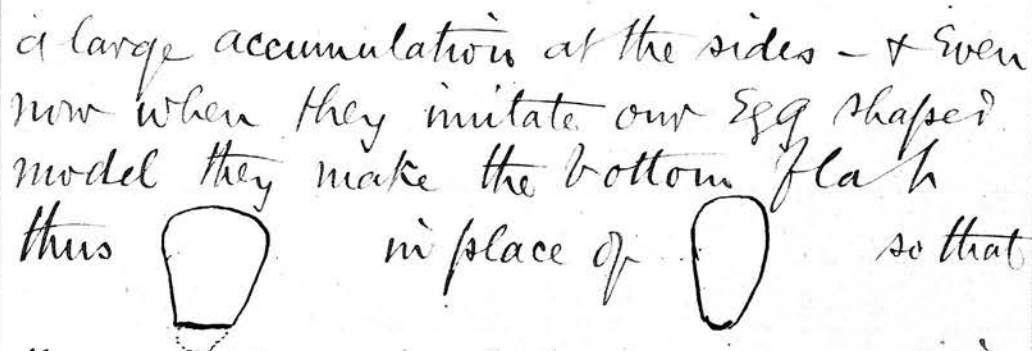 a large accumulation at the sides - & Even
now when they imitate our Egg shaped
model they make the bottom flat
thus in place of so that